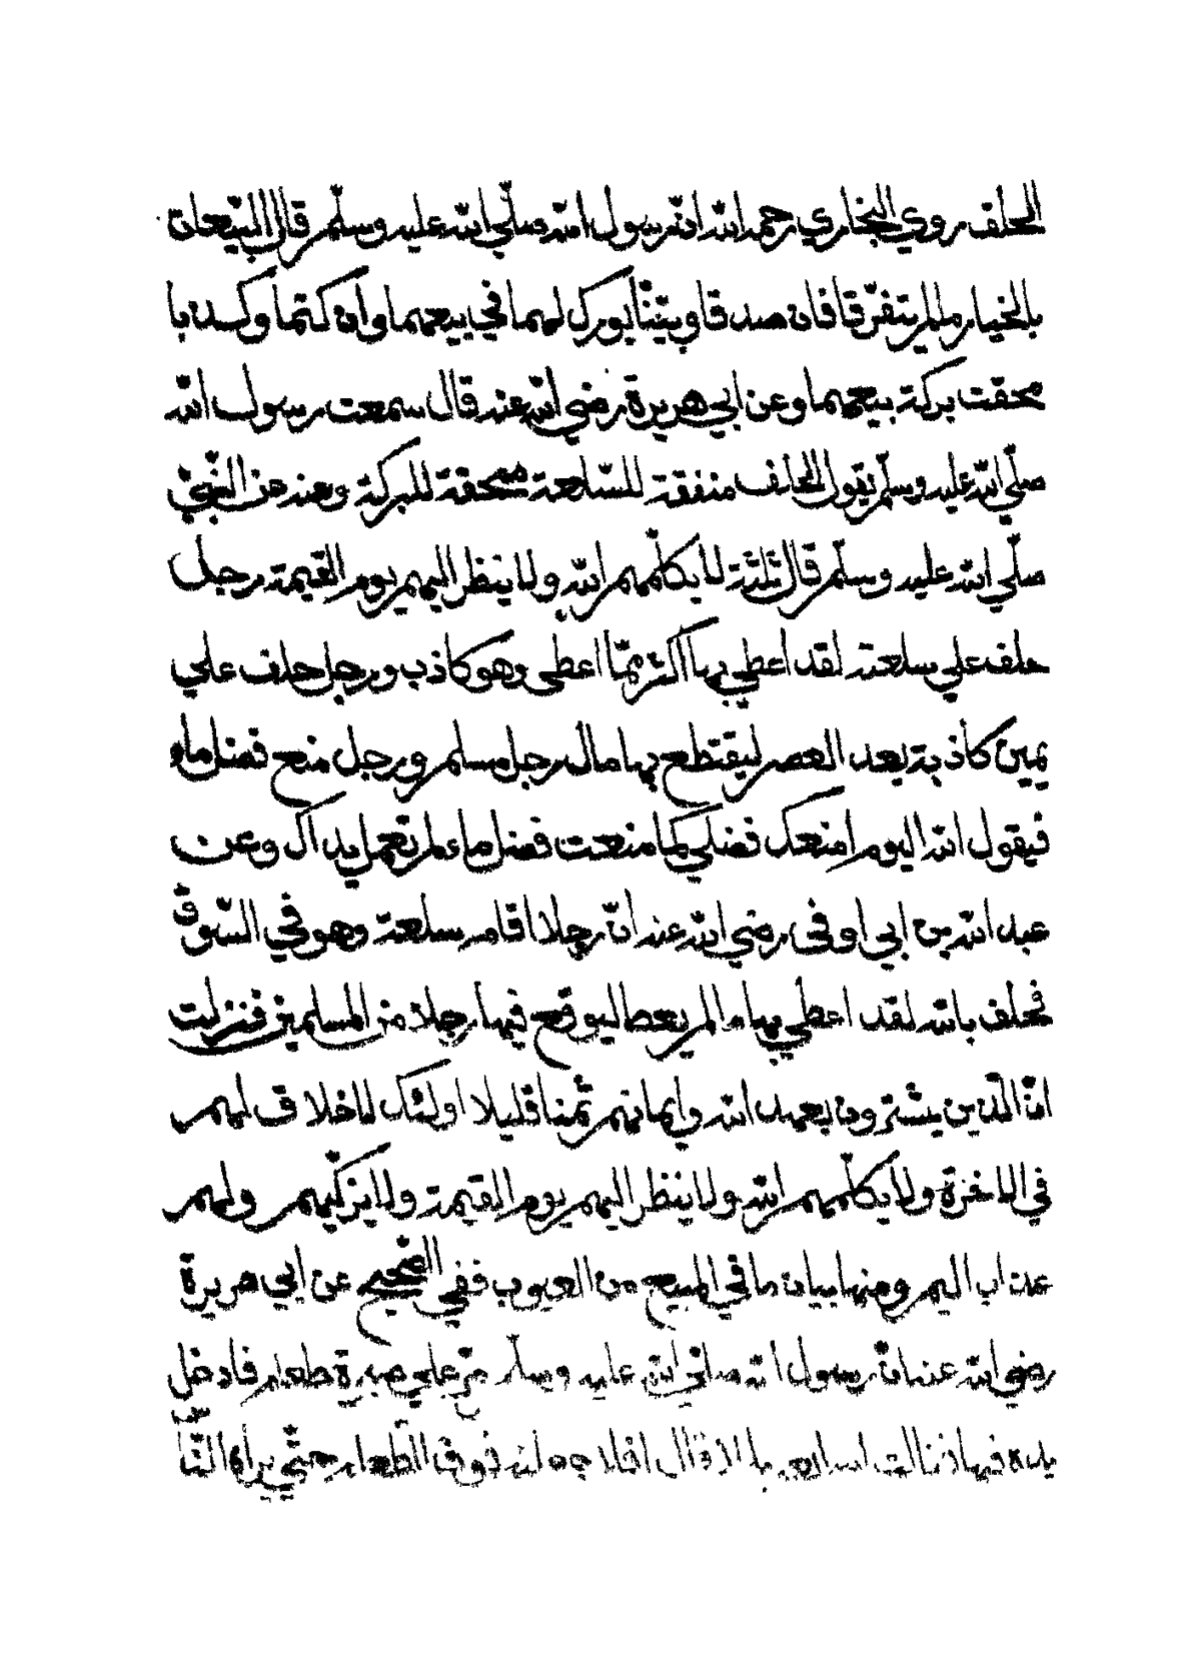 الحلف روي البخاري رحمه الله انّ رسول الله صلّي الله عليه وسلّم قال البيّعان
بالخيار مالم يتفرّقا فان صدقا وبيّنّا بورك لهما في بيعهما وان كتما وكذبا
محقت بركة بيعهما وعن ابي هريرة رضي الله عنه قال سمعت رسول الله
صلّي الله عليه وسلّم يقول الحلف منفقة للسّلعة ممحقة للبركة وعنه عن النّبيّ
صلّي الله عليه وسلّم قال ثلثة لا يكلّمهم الله ولا ينظر اليهم يوم القيمة رجل
حلف علي سلعته لقد اعطي بها اكثر ممّا اعطي وهو كاذب ورجل حلف علي
يمين كاذبة بعد العصر ليقتطع بها مال رجل مسلم ورجل منع فضل ماء
فيقول الله اليوم امنعك فضلي كما منعت فضل ماء لم تعمل يداك وعن
عبد الله بن ابي اوفى رضي الله عنه انّ رجلا اقام سلعة وهو في السّوق
فحلف بالله لقد اعطي بها ما لم يعط ليوقع فيها رجلا من المسلمين فنزلت
انّ الّذين يشترون بعهد الله وايمانهم ثمنا قليلا اولئك لا خلاق لهم
في الاخرة ولا يكلّمهم الله ولا ينظر اليهم يوم القيمة ولا يزكّيهم ولهم
عذاب اليم ومنها بيان ما في المبيع من العيوب ففي الصّحيح عن ابي هريرة
رضي الله عنه انّ رسول الله صلّي الله عليه وسلّم مرّ علي صبرة طعام فادخل
يده فيها فنالت اصابعه بللا فقال افلا جعلته فوق الطّعام حتّي يراه النّاس